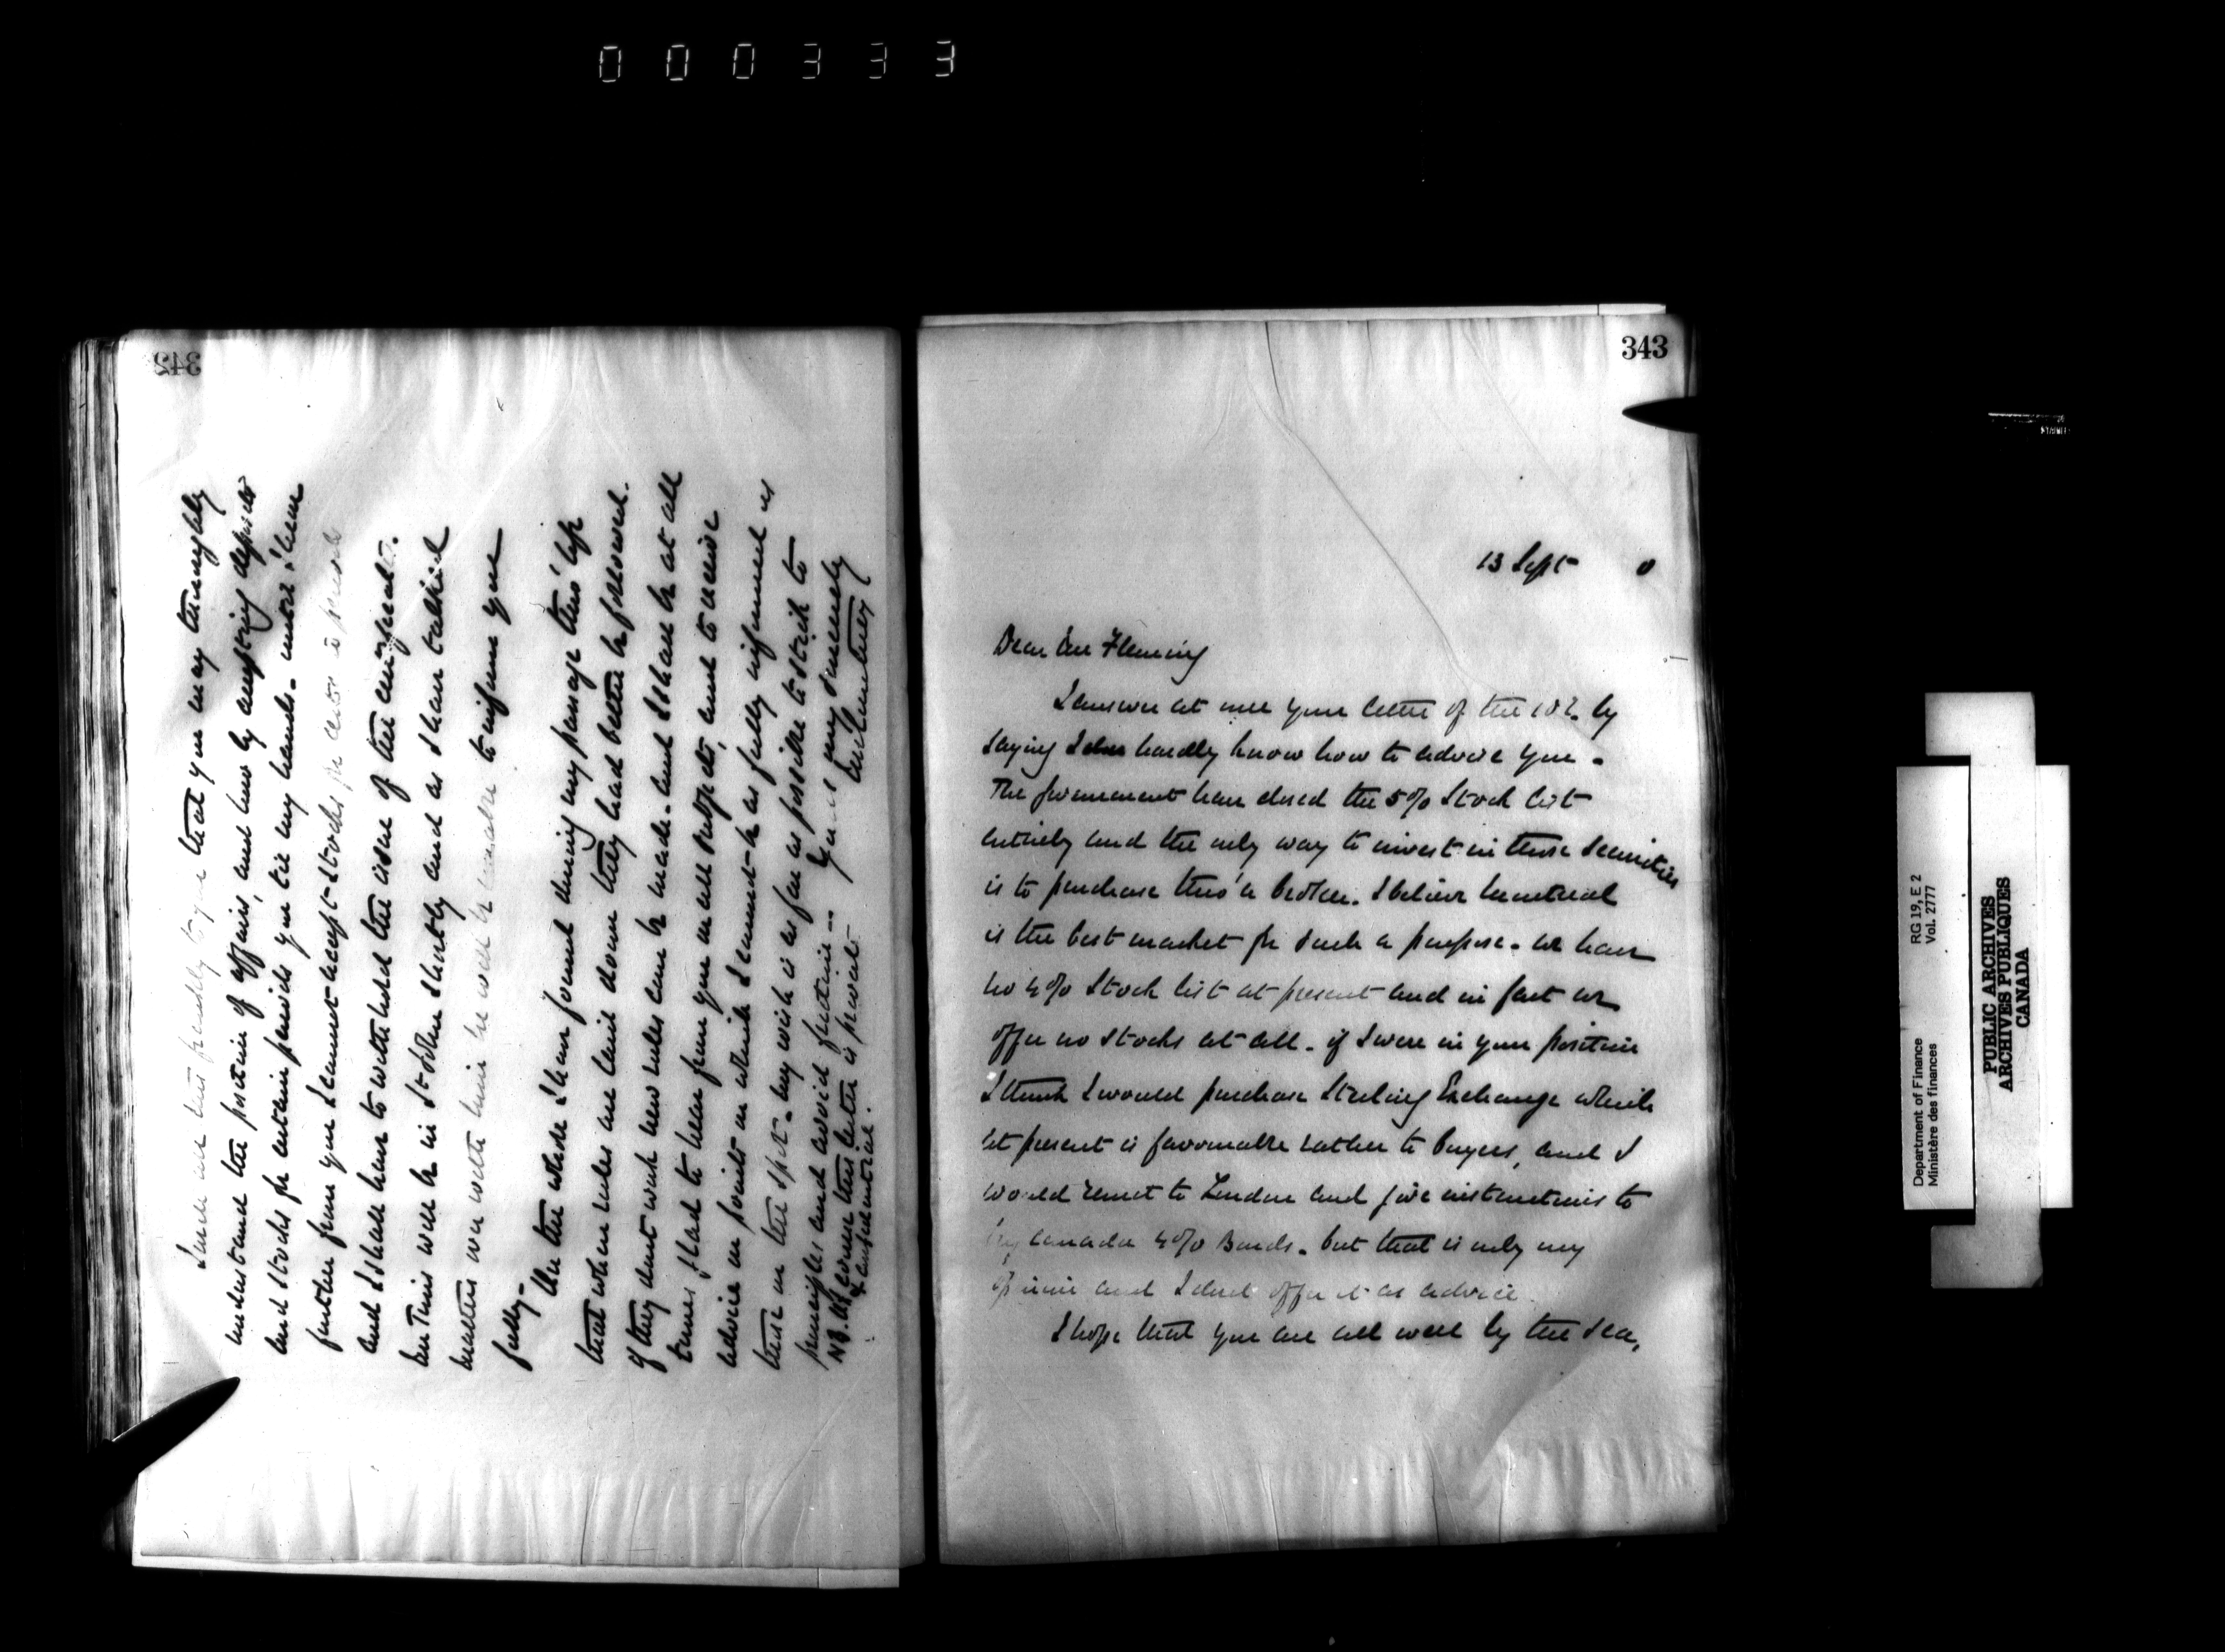 000333
342
I send all this frankly to you that you may thoroughly
understand the position of affairs, and how by accepting deposits
and stocks for certain periods you tie my hands. until I hear
further from you I cannot accept stocks for under a periods
and I shall have to withhold the issue of the certificate.
Mr Timis will be in St John shortly and as I have talked
matters over with him he will be enabled to inform you
fully.
On the whole I have found during my passage thro' life
that when rules are laid down they had better be followed.
If they dont work new rules can be made. and I shall be at all
times glad to hear from you on all subjects, and to receive
advice on points on which I cannot be as fully informed as
those on the spot. my wish is as far as possible to stick to
principles and avoid friction -- Yours very sincerely
JMCourtney
N.B. Of course this letter is private
& confidential.
343
13 Sept 0
Dear Mr Fleming
I answer at once your letter of the 10th by
saying I hardly know how to advise you.
The Government have closed the 5% Stock list
entirely and the only way to invest in those securities
is to purchase thro' a broker. I believe Montreal
is the best market for such a purpose. We have
no 4% Stock list at present and in fact we
offer no stocks at all. if I were in your position
I think I would purchase Sterling Exchange which
at present is favourable rather to buyers, and I
would remit to London and give instructions to
buy Canada 4% Bonds. but that is only my
opinion and I dont offer it as advice.
I hope that you are all well by the sea,
Department of Finance
Ministère des finances
RG 19, E 2
Vol. 2777
PUBLIC ARCHIVES
ARCHIVES PUBLIQUES
CANADA